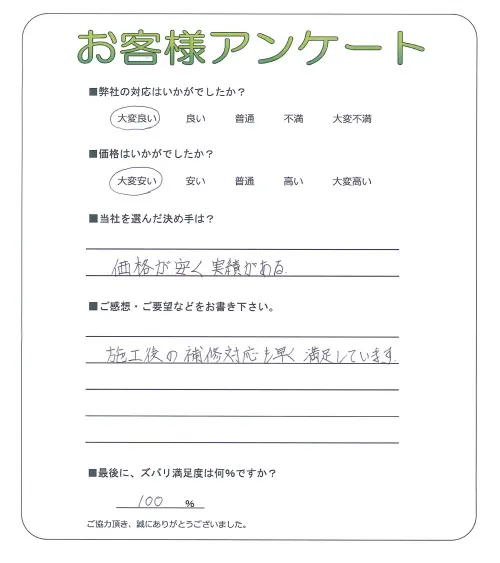 お客様アンケート
■弊社の対応はいかがでしたか？
大変良い 良い 普通 不満 大変不満
■価格はいかがでしたか？
大変安い 安い 普通 高い 大変高い
■当社を選んだ決め手は？
価格が安く実績がある。
■ご感想・ご要望などをお書き下さい。
施工後の補修対応も早く満足しています。
■最後に、ズバリ満足度は何%ですか？
100 %
ご協力頂き、誠にありがとうございました。